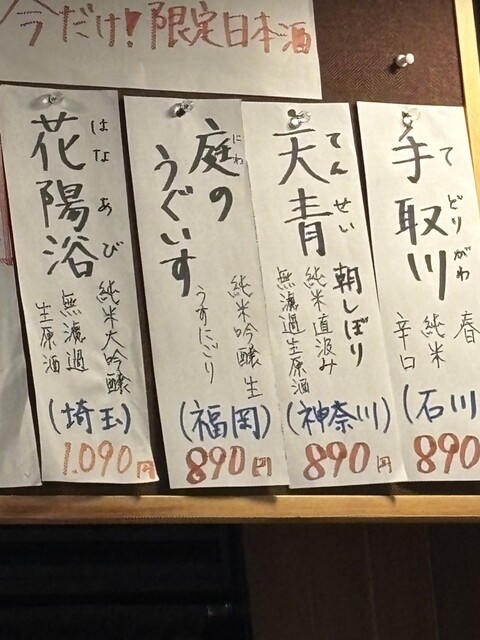 今だけ！限定日本酒
手取川
てどりがわ
春
純米
辛口
(石川
890
天青
てんせい
朝しぼり
純米直汲み
無濾過生原酒
(神奈川)
890円
庭の
にわ
うぐいす
純米吟醸 生
うすにごり
(福岡)
890円
花陽浴
はなあび
純米大吟醸
無濾過
生原酒
(埼玉)
1.090円